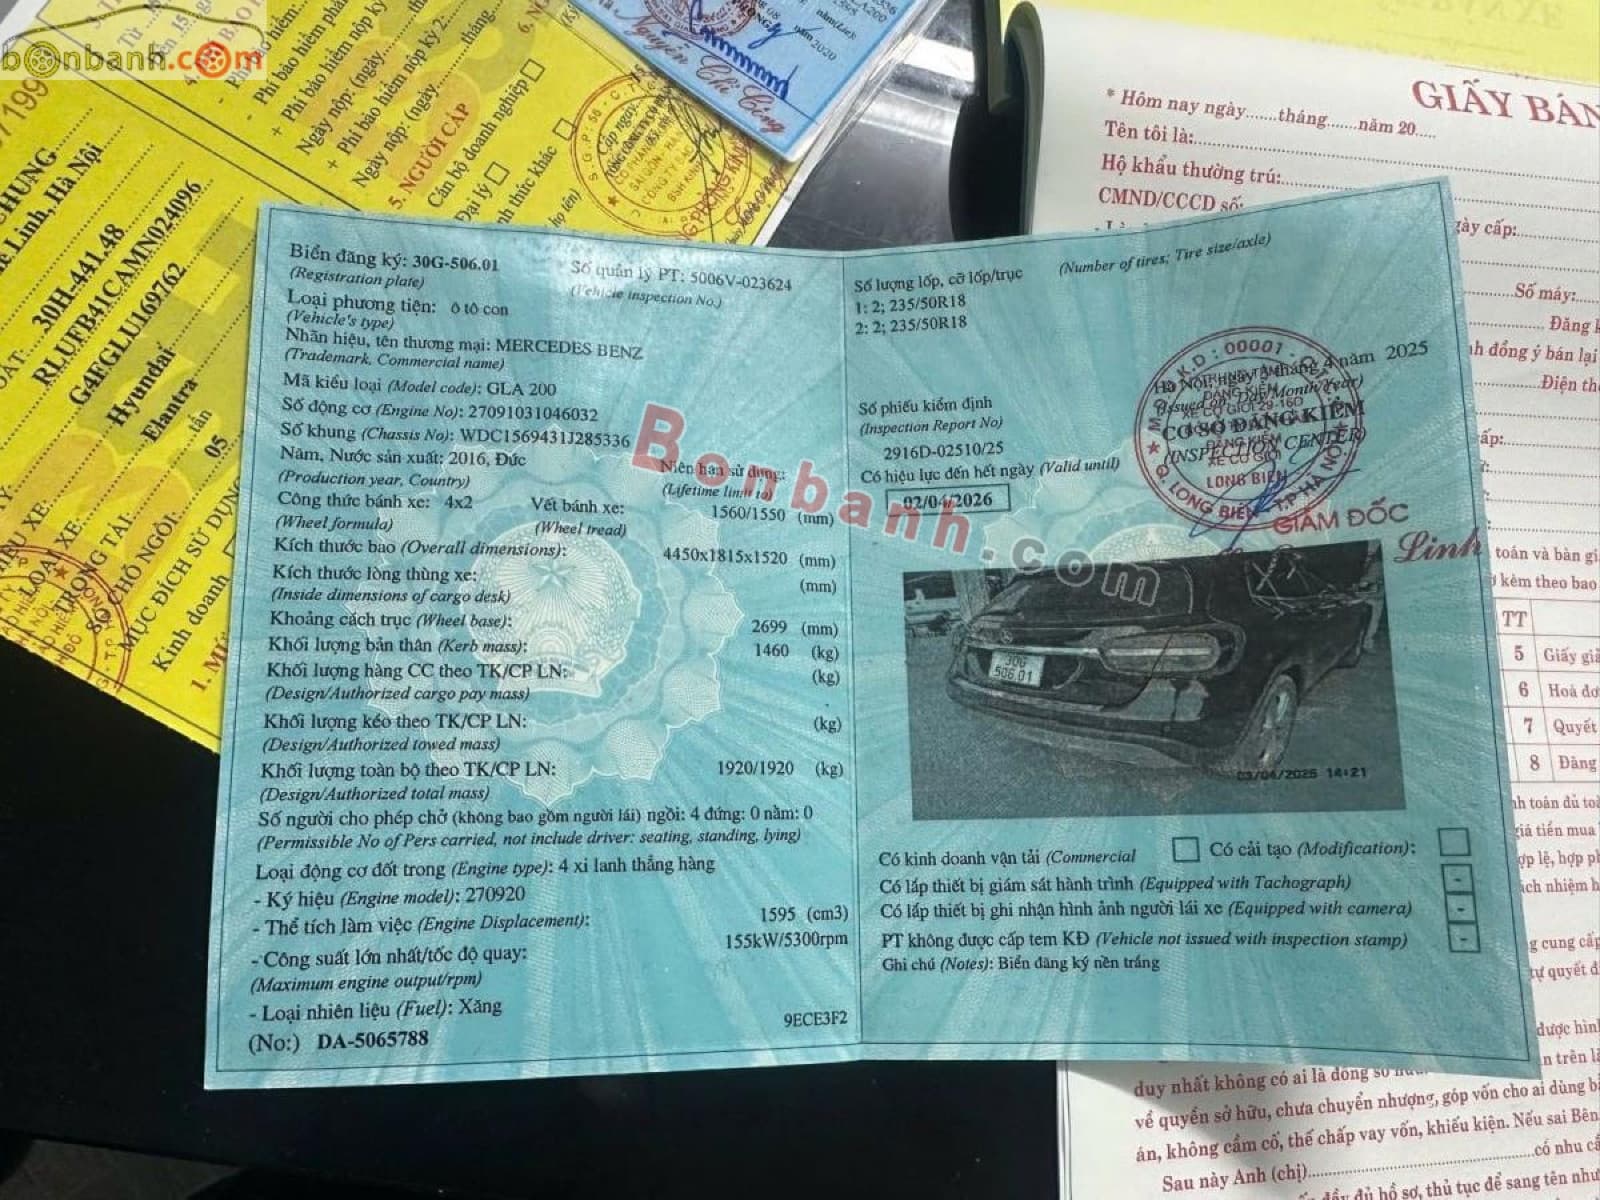 bonbanh.com
Biển đăng ký: 30G-506.01
(Registration plate)
Số quản lý PT: 5006V-023624
(Vehicle inspection No.)
Loại phương tiện: ô tô con
(Vehicle's type)
Nhãn hiệu, tên thương mại: MERCEDES BENZ
(Trademark, Commercial name)
Mã kiểu loại (Model code): GLA 200
Số động cơ (Engine No): 27091031046032
Số khung (Chassis No): WDC1569431J285336
Năm, Nước sản xuất: 2016, Đức
(Production year, Country)
Niên hạn sử dụng:
(Lifetime limit to)
Công thức bánh xe: 4x2
(Wheel formula)
Vết bánh xe: 1560/1550 (mm)
(Wheel tread)
Kích thước bao (Overall dimensions): 4450x1815x1520 (mm)
Kích thước lòng thùng xe: (mm)
(Inside dimensions of cargo desk)
Khoảng cách trục (Wheel base): 2699 (mm)
Khối lượng bản thân (Kerb mass): 1460 (kg)
Khối lượng hàng CC theo TK/CP LN: (kg)
(Design/Authorized cargo pay mass)
Khối lượng kéo theo TK/CP LN: (kg)
(Design/Authorized towed mass)
Khối lượng toàn bộ theo TK/CP LN: 1920/1920 (kg)
(Design/Authorized total mass)
Số người cho phép chở (không bao gồm người lái) ngồi: 4 đứng: 0 nằm: 0
(Permissible No of Pers carried, not include driver: seating, standing, lying)
Loại động cơ đốt trong (Engine type): 4 xi lanh thẳng hàng
- Ký hiệu (Engine model): 270920
- Thể tích làm việc (Engine Displacement): 1595 (cm3)
- Công suất lớn nhất/tốc độ quay: 155kW/5300rpm
(Maximum engine output/rpm)
- Loại nhiên liệu (Fuel): Xăng
(No:) DA-5065788
9ECE3F2
Số lượng lốp, cỡ lốp/trục (Number of tires; Tire size/axle)
1: 2; 235/50R18
2: 2; 235/50R18
Hà Nội, ngày 3 tháng 4 năm 2025
(Issued on: Day/Month/Year)
CƠ SỞ ĐĂNG KIỂM
(INSPECTION CENTER)
Số phiếu kiểm định
(Inspection Report No)
2916D-02510/25
Có hiệu lực đến hết ngày (Valid until)
02/04/2026
LONG BIÊN
Q. LONG BIÊN - T.P HÀ NỘI
GIÁM ĐỐC
Linh
Bonbanh.com
30G
506.01
03/04/2025 14:21
Có kinh doanh vận tải (Commercial
Có cải tạo (Modification):
Có lắp thiết bị giám sát hành trình (Equipped with Tachograph)
-
Có lắp thiết bị ghi nhận hình ảnh người lái xe (Equipped with camera)
-
PT không được cấp tem KĐ (Vehicle not issued with inspection stamp)
-
Ghi chú (Notes): Biển đăng ký nền trắng
HUNG
Linh, Hà Nội
30H-441.48
RLUFB41CAMN024096
G4FGLU169762
Hyundai
Elantra
tấn
05
LOẠI XE
TRỌNG TẢI
SỐ CHỖ NGỒI
MỤC ĐÍCH SỬ DỤNG
Kinh doanh
- Phí bảo hiểm
+ Phí bảo hiểm nộp kỳ
Ngày nộp: (ngày... tháng
+ Phí bảo hiểm nộp kỳ 2:
Ngày nộp: (ngày...... tháng
5. NGƯỜI CẤP
Cán bộ doanh nghiệp
Đại lý
Hình thức khác
năm 2020
Nguyễn Chí Công
GIẤY BÁN
* Hôm nay ngày.......tháng.......năm 20.....
Tên tôi là:
Hộ khẩu thường trú:
CMND/CCCD số:
ngày cấp:
Số máy:
Đăng k
đồng ý bán lại
Điện tho
toán và bàn gi
kèm theo bao
TT
5 Giấy gi
6 Hoá đơ
7 Quyết
8 Đăng
toán đủ to
giá tiền mua
hợp lệ, hợp ph
trách nhiệm h
cung cấp
tự quyết đ
được hìn
duy nhất không có ai là đồng sở
về quyền sở hữu, chưa chuyển nhượng, góp vốn cho ai dùng b
án, không cầm cố, thế chấp vay vốn, khiếu kiện. Nếu sai Bên
có nhu c
Sau này Anh (chị)
đầy đủ hồ sơ, thủ tục để sang tên như